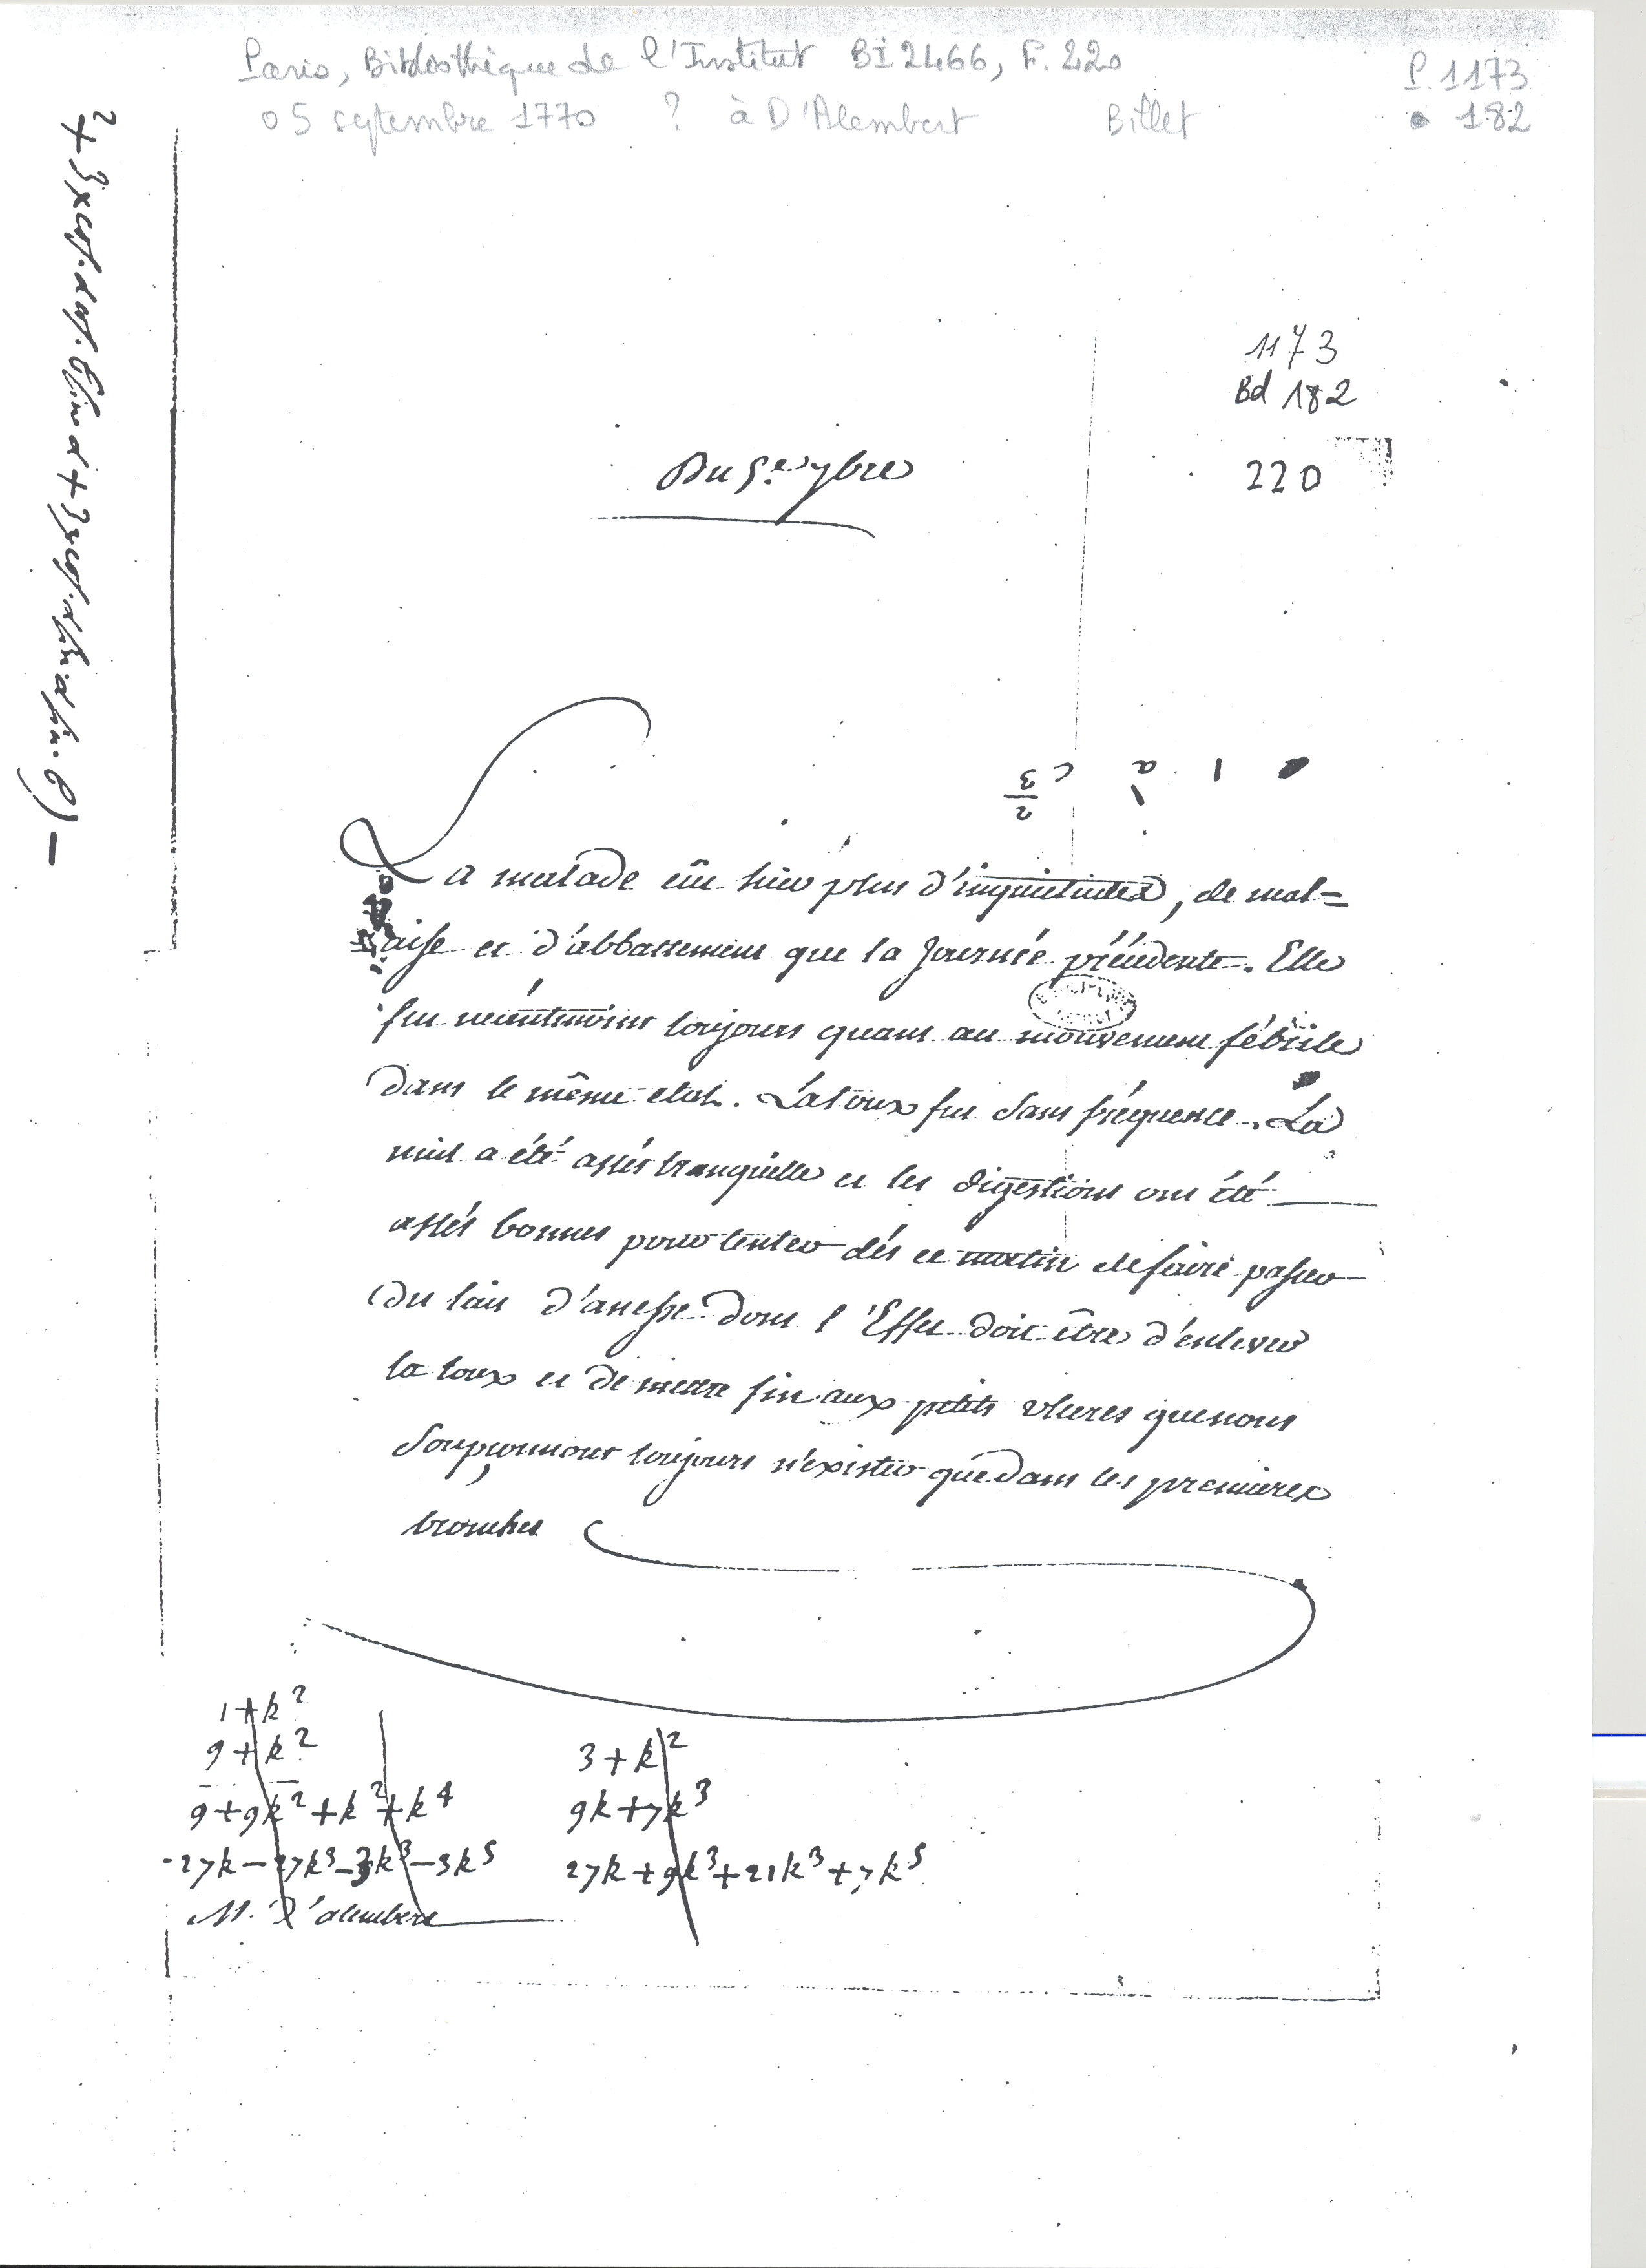 Paris, Bibliothèque de l'Institut BI 2466, F. 220
P. 1173
05 septembre 1770 ? à D'Alembert Billet
182
1173
Bd 182
220
Du 5.e 7bre
La malade eût hier plus d'inquietudes, de mal=
=aise et d'abbattement que la Journée précédente. Elle
fut néantmoins toujours quant au mouvement fébrile
dans le même etat. La toux fut sans fréquence. La
nuit a été assés tranquille et les digestions ont été
assés bonnes pour tenter dés ce matin de faire passer
du lait d'anesse dont l'Effet doit être d'enlever
la toux et de mettre fin aux petits ulceres que nous
Soupçonnons toujours n'exister que dans les premieres
bronches
1+k²
9+k²
9+9k²+k²+k⁴
-27k-27k³-3k³-3k⁵
3+k²
9k+7k³
27k+9k³+21k³+7k⁵
M. D'alembert